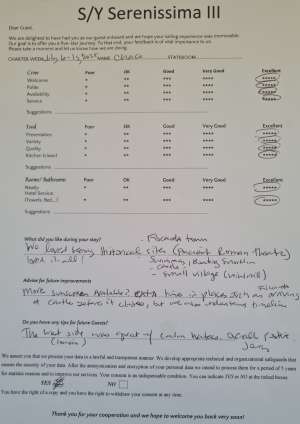 S/Y Serenissima III
Dear Guest,
We are delighted to have had you as our guest onboard and we hope your sailing experience was memorable.
Our goal is to offer you a five-star journey. To that end, your feedback is of vital importance to us.
Please take a moment and let us know how we are doing.
CHARTER WEEK NAME STATEROOM
Crew Poor OK Good Very Good Excellent
Welcome * ** *** **** *****
Polite * ** *** **** *****
Availability * ** *** **** *****
Service * ** *** **** *****
Suggestions
Food Poor OK Good Very Good Excellent
Presentation * ** *** **** *****
Variety * ** *** **** *****
Quality * ** *** **** *****
Kitchen travel * ** *** **** *****
Suggestions
Rooms/ Bathrooms Poor OK Good Very Good Excellent
Ready * ** *** **** *****
Hotel Service
(Towels, Bed...) * ** *** **** *****
Suggestions
What did you like during your stay?
We loved seeing Historical sites (Ancient Roman Theatre)
loved it all!
- castle
- small village (windmill)
Advice for future improvements
More sunscreen Available? time in places such as arriving
at castle before it closes, but we understand timeline
Do you have any tips for future Guests?
The west side was great - calm waters.
We assure you that we process your data in a lawful and transparent manner. We develop appropriate technical and organizational safeguards that
ensure the security of your data. After the anonymization and encryption of your personal data we intend to process them for a period of 5 years
for statistic reasons and to improve our services. Your consent is an indispensable condition. You can indicate YES or NO at the ticked boxes
YES NO
You have the right of a copy and you have the right to withdraw your consent at any time.
Thank you for your cooperation and we hope to welcome you back very soon!